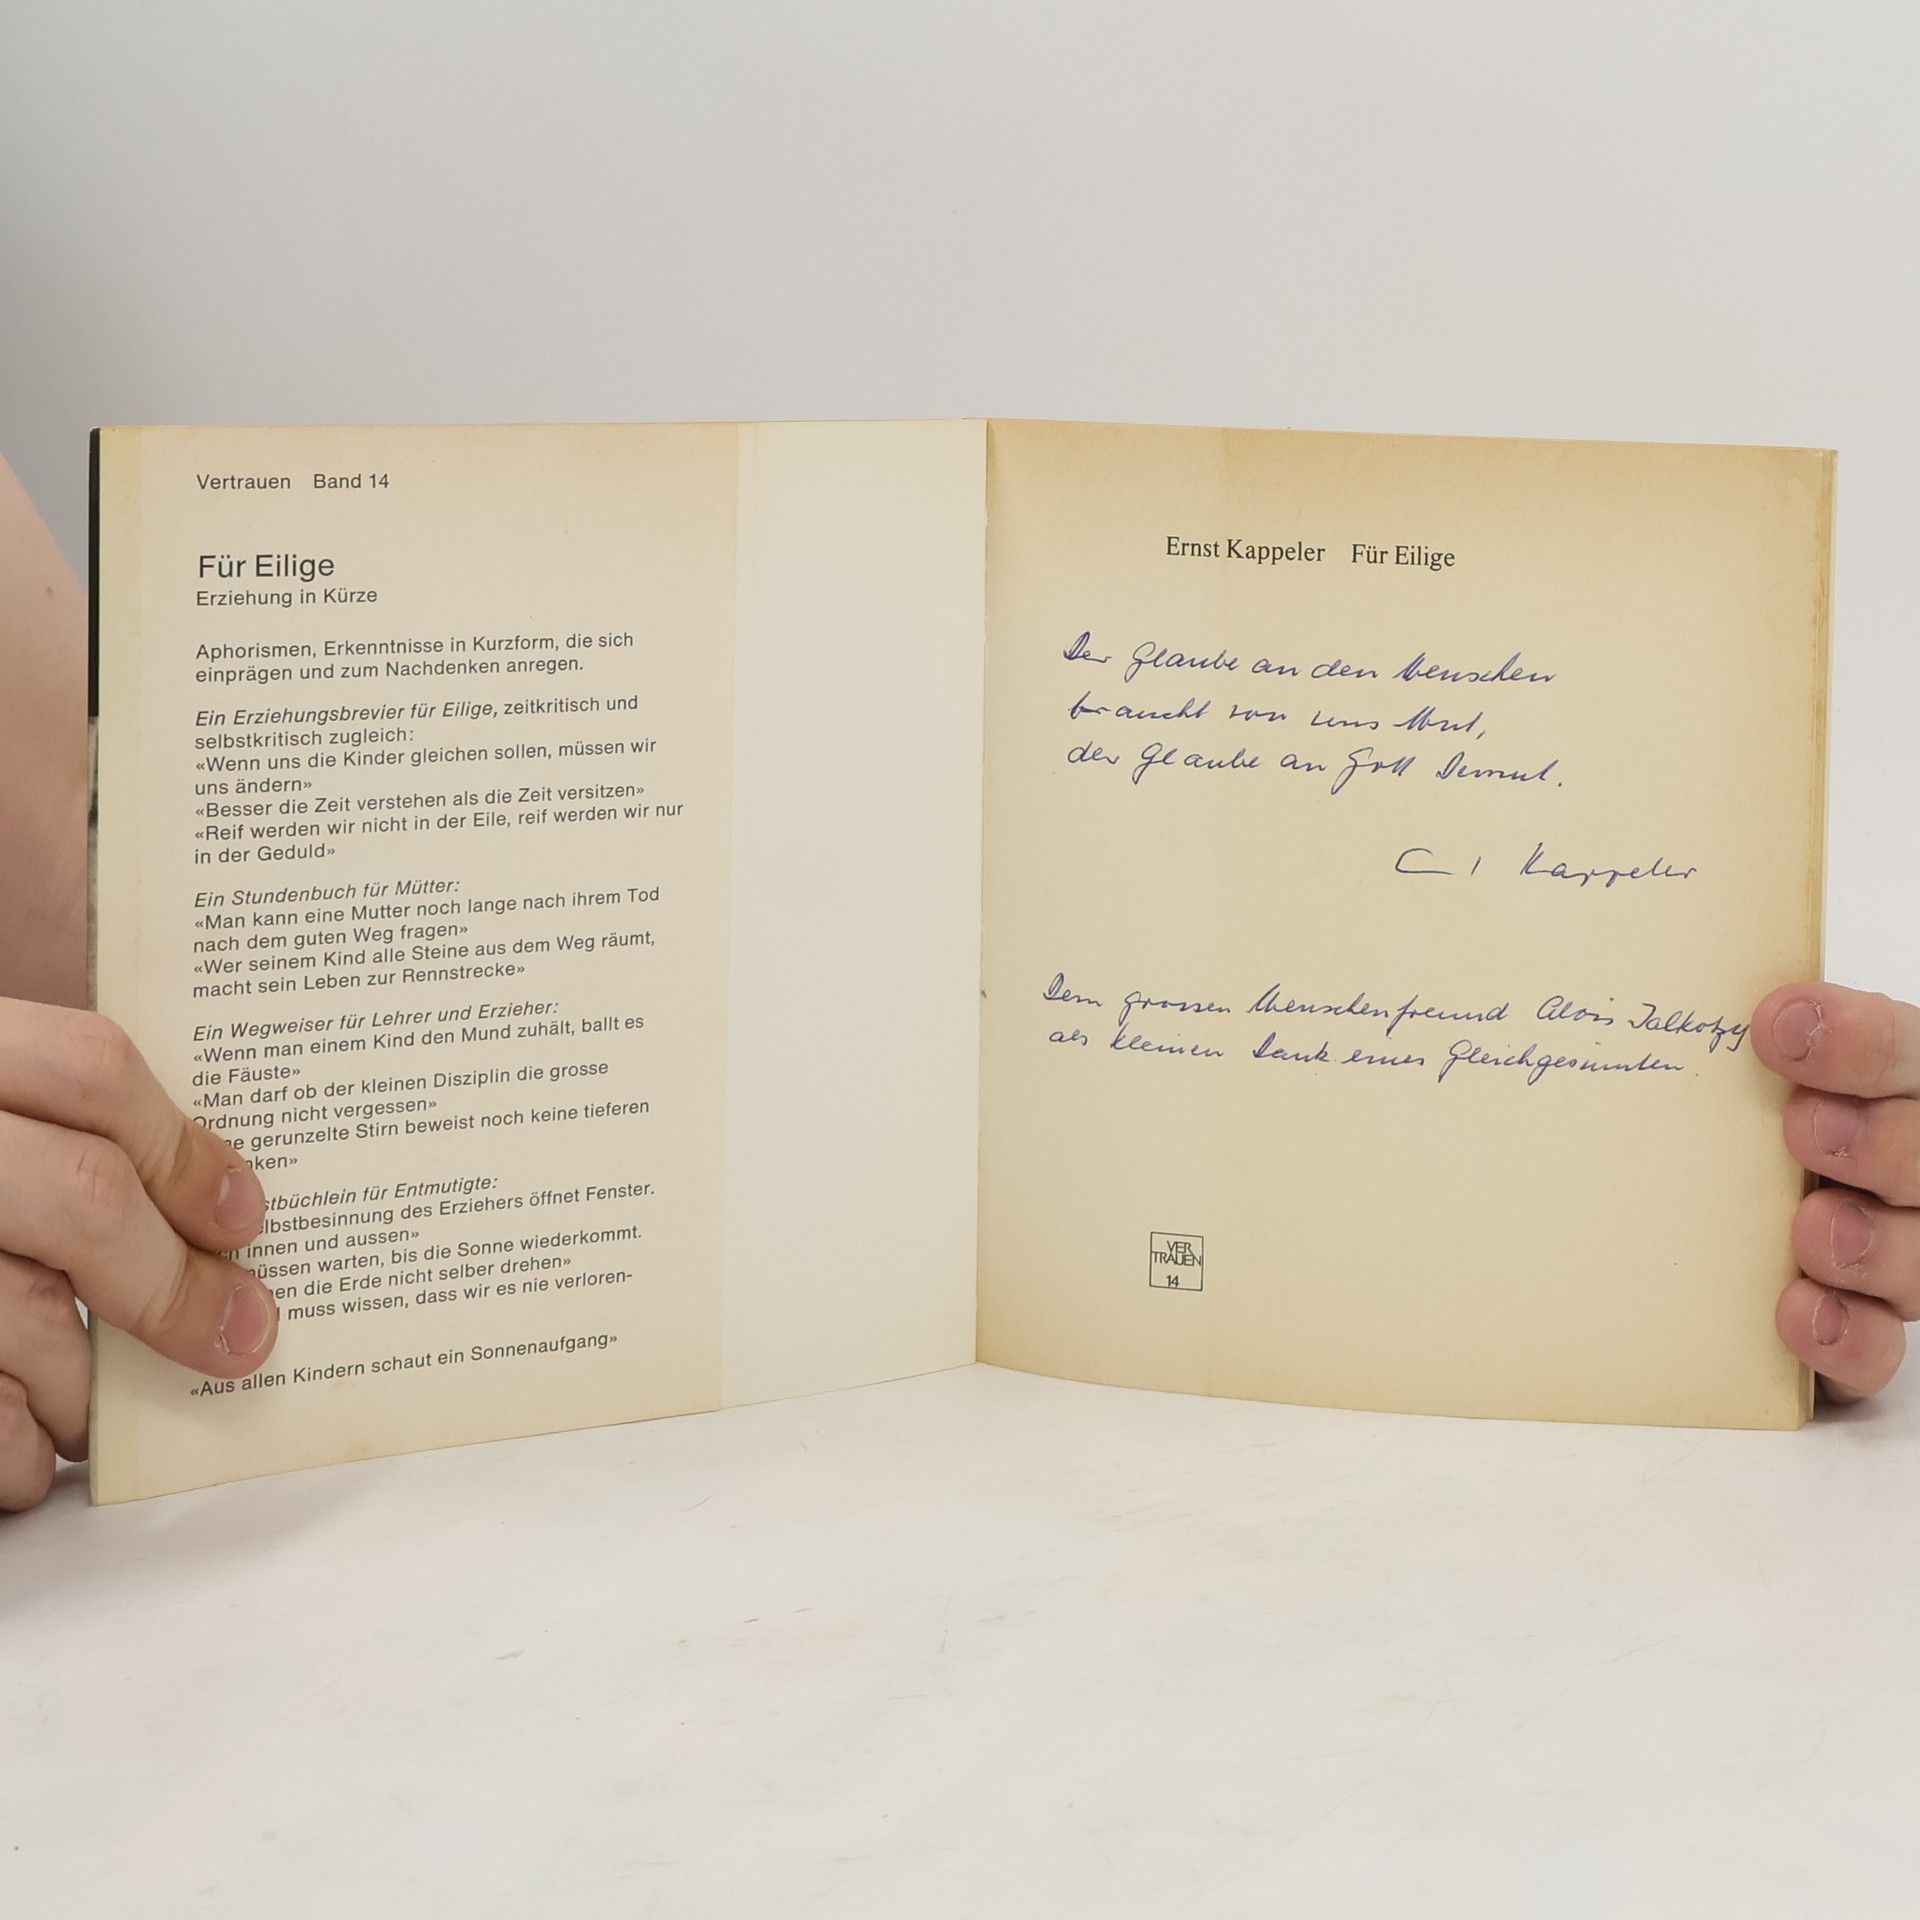 Vertrauen Band 14
Für Eilige
Erziehung in Kürze
Aphorismen, Erkenntnisse in Kurzform, die sich
einprägen und zum Nachdenken anregen.
Ein Erziehungsbrevier für Eilige, zeitkritisch und
selbstkritisch zugleich:
«Wenn uns die Kinder gleichen sollen, müssen wir
uns ändern»
«Besser die Zeit verstehen als die Zeit versitzen»
«Reif werden wir nicht in der Eile, reif werden wir nur
in der Geduld»
Ein Stundenbuch für Mütter:
«Man kann eine Mutter noch lange nach ihrem Tod
nach dem guten Weg fragen»
«Wer seinem Kind alle Steine aus dem Weg räumt,
macht sein Leben zur Rennstrecke»
Ein Wegweiser für Lehrer und Erzieher:
«Wenn man einem Kind den Mund zuhält, ballt es
die Fäuste»
«Man darf ob der kleinen Disziplin die grosse
Ordnung nicht vergessen»
gerunzelte Stirn beweist noch keine tieferen
für Entmutigte:
des Erziehers öffnet Fenster.
innen und aussen»
warten, bis die Sonne wiederkommt.
die Erde nicht selber drehen»
muss wissen, dass wir es nie verloren-
«Aus allen Kindern schaut ein Sonnenaufgang»
Ernst Kappeler Für Eilige
Der Glaube an den Menschen
braucht von uns Mut,
der Glaube an Gott Demut.
Kappeler
Dem grossen Menschenfreund Alois Jalkotzy
als kleinen Dank eines Gleichgesinnten.
VER
TRAUEN
14